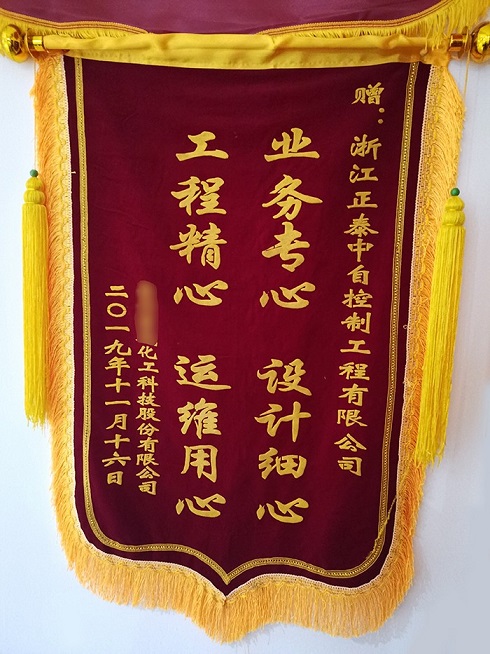 赠：浙江正泰中自控制工程有限公司
业务专心 设计细心
工程精心 运维用心
化工科技股份有限公司
二〇一九年十一月十六日